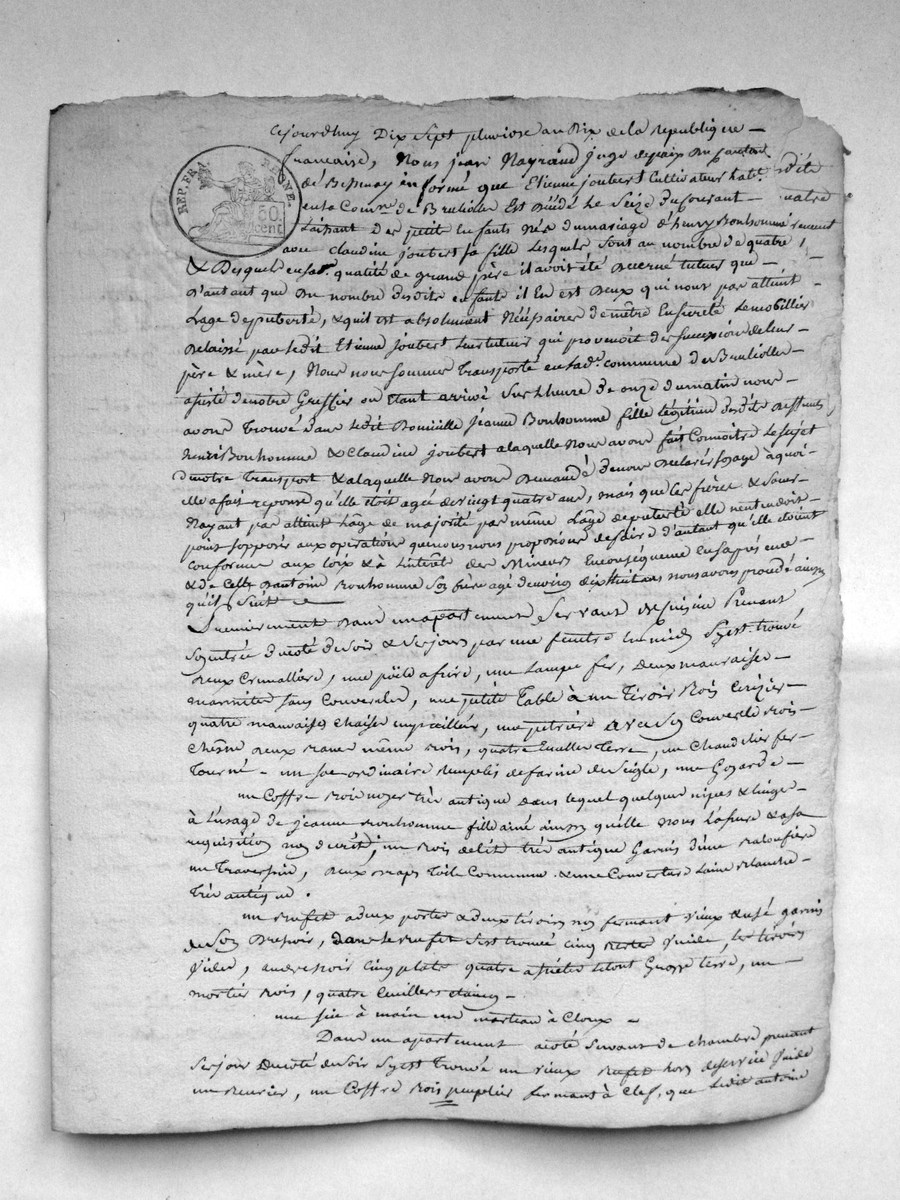 Cejourdhuy Dix Sept pluviose an Dix de la Republique
française, Nous jean Nayrand juge depaix Du canton
de Bessenay informé que Etienne joubert Cultivateur habt
enla Comne de Brulioller Est Décédé Le Seize Du Courant
Laissant Des petit Enfants Nés Dumariage d'henry Bonhomme
avec Claudine joubert sa fille Lesquels Sont au nombre de quatre
REP. FRA. 50 cent.
& Desquels en sa qualité de grand père il avoit été Decerné tuteur que
D'autant que Du nombre desdits enfants il En est Deux qui nont pas atteint
Lage depuberté, & quil est absolument Nécessaire demêtre En sureté Lemobillier
Delaissé par Ledit Etienne joubert Leurtuteur qui provenoit des succession de leur
père & mère, Nous nous sommes Transporté en lade commune des Brulioller
assisté denotre Greffier ou Etant arrivé Sur Lheure de onze Dumatin nous
avons Trouvé Dans Ledit Domicille jeanne Bonhomme fille Légitime desdits Deffunts
henri Bonhomme & Claudine joubert alaquelle Nous avons fait Connoitre Lesujet
denotre Transport & alaquelle Nous avons Demandé denous Déclarer son age à quoi
elle a fait reponse qu'elle étoit agée de vingt quatre ans, mais que Ces frères & Sœurs
Nayant pas atteint Lage de majorité pas même Lage depuberté elle nentendoit
point sopposer aux operations quenous nous proposions defaire d'autant qu'elle étoient
conforme aux Loix & à Lintérêt des Mineurs Enconséquence Ensa présence
& de Celle Dantoine Bonhomme Son frère agé denviron dix huit ans nous avons procédé ainsy
quil Suit
Premierement Dans un apartement Servant De Cuisine Prenant
Son entrée Ducoté Du Soir & Ses jours par une fenêtre au midy Syest trouvé
Deux Cremallère, une poële a frire, une Lampe fer, Deux mauvaises
marmittes Sans Couvercles, une petite Table à un Tiroir Bois Cerizier
quatre mauvaises Chaises enpaille, une petrière avec Son Couvercle Bois
Chesne Deux bancs même Bois, quatre Ecuelles Terre, un Chandelier fer
Tourné un Sac ordinaire Remplis de farine de Seigle, une Gozarde
un Coffre Bois noyer très antique dans lequel quelques nipes & Linge
à Lusage de jeanne Bonhomme fille ainé ainsy quelle Nous La assuré & a sa
requisition non decrit, un Bois de Lit très antique Garnis d'une Baloufière
un Traversin, Deux Draps Toile Commune & une Couverte Laine Blanche
Très antique.
un Buffet a deux portes & deux tiroirs non fermant vieux & usé garnis
de Son Dressoir, dans Lebuffet S'est trouvé Cinq vuide, les tiroirs
vuides, au dressoir Cinq plats quatre assiettes Letout Grosse terre, un
mortier Bois, quatre Cuillers étaing
une Sie à main un marteau à Cloux
Dans un apartement acoté Servant de Chambre prenant
Ses jour Ducoté du Soir Syest Trouvé un vieux Buffet hors deservice vuide
un , un Coffre Bois peuplier fermant à Clef, que Ledit antoine